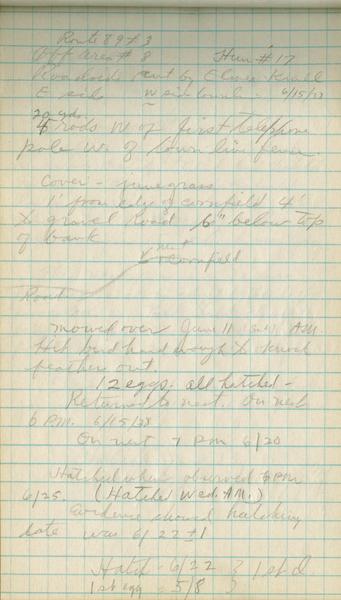 Route 89 + 3
Off area # 8 Hun # 17
Roadside cut by Elmer Knoll
E side 6/15/
20 yds.
5 rods W of first telephone
pole W. of town line fence
Cover - june grass
1' from edge of cornfield 4'
X gravel road 6" below top
of bank
nest
cornfield
Road
mowed over June 11 A.M.
Hit bird hard enough to knock
feathers out
12 eggs. all hatched -
Returned to nest. On nest
6 P.M. 6/15/
On nest 7 P.M. 6/20
Hatched when observed PM
6/25. (Hatched Wed. A.M.)
Evidence showed hatching
date was 6/22 ± 1
Hatch - 6/22
1st egg - 5/8